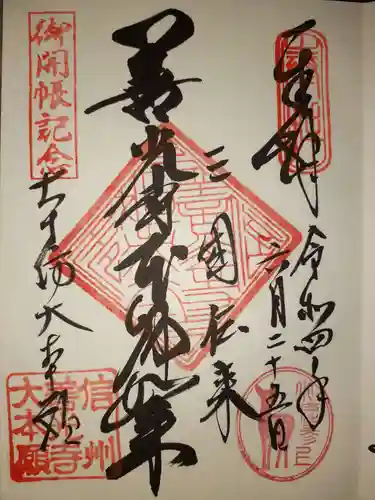 奉拝
令和四年
六月二十五日
三国伝来
善光寺本師如来
御開帳記念
大本願
信州
善光寺
大本願